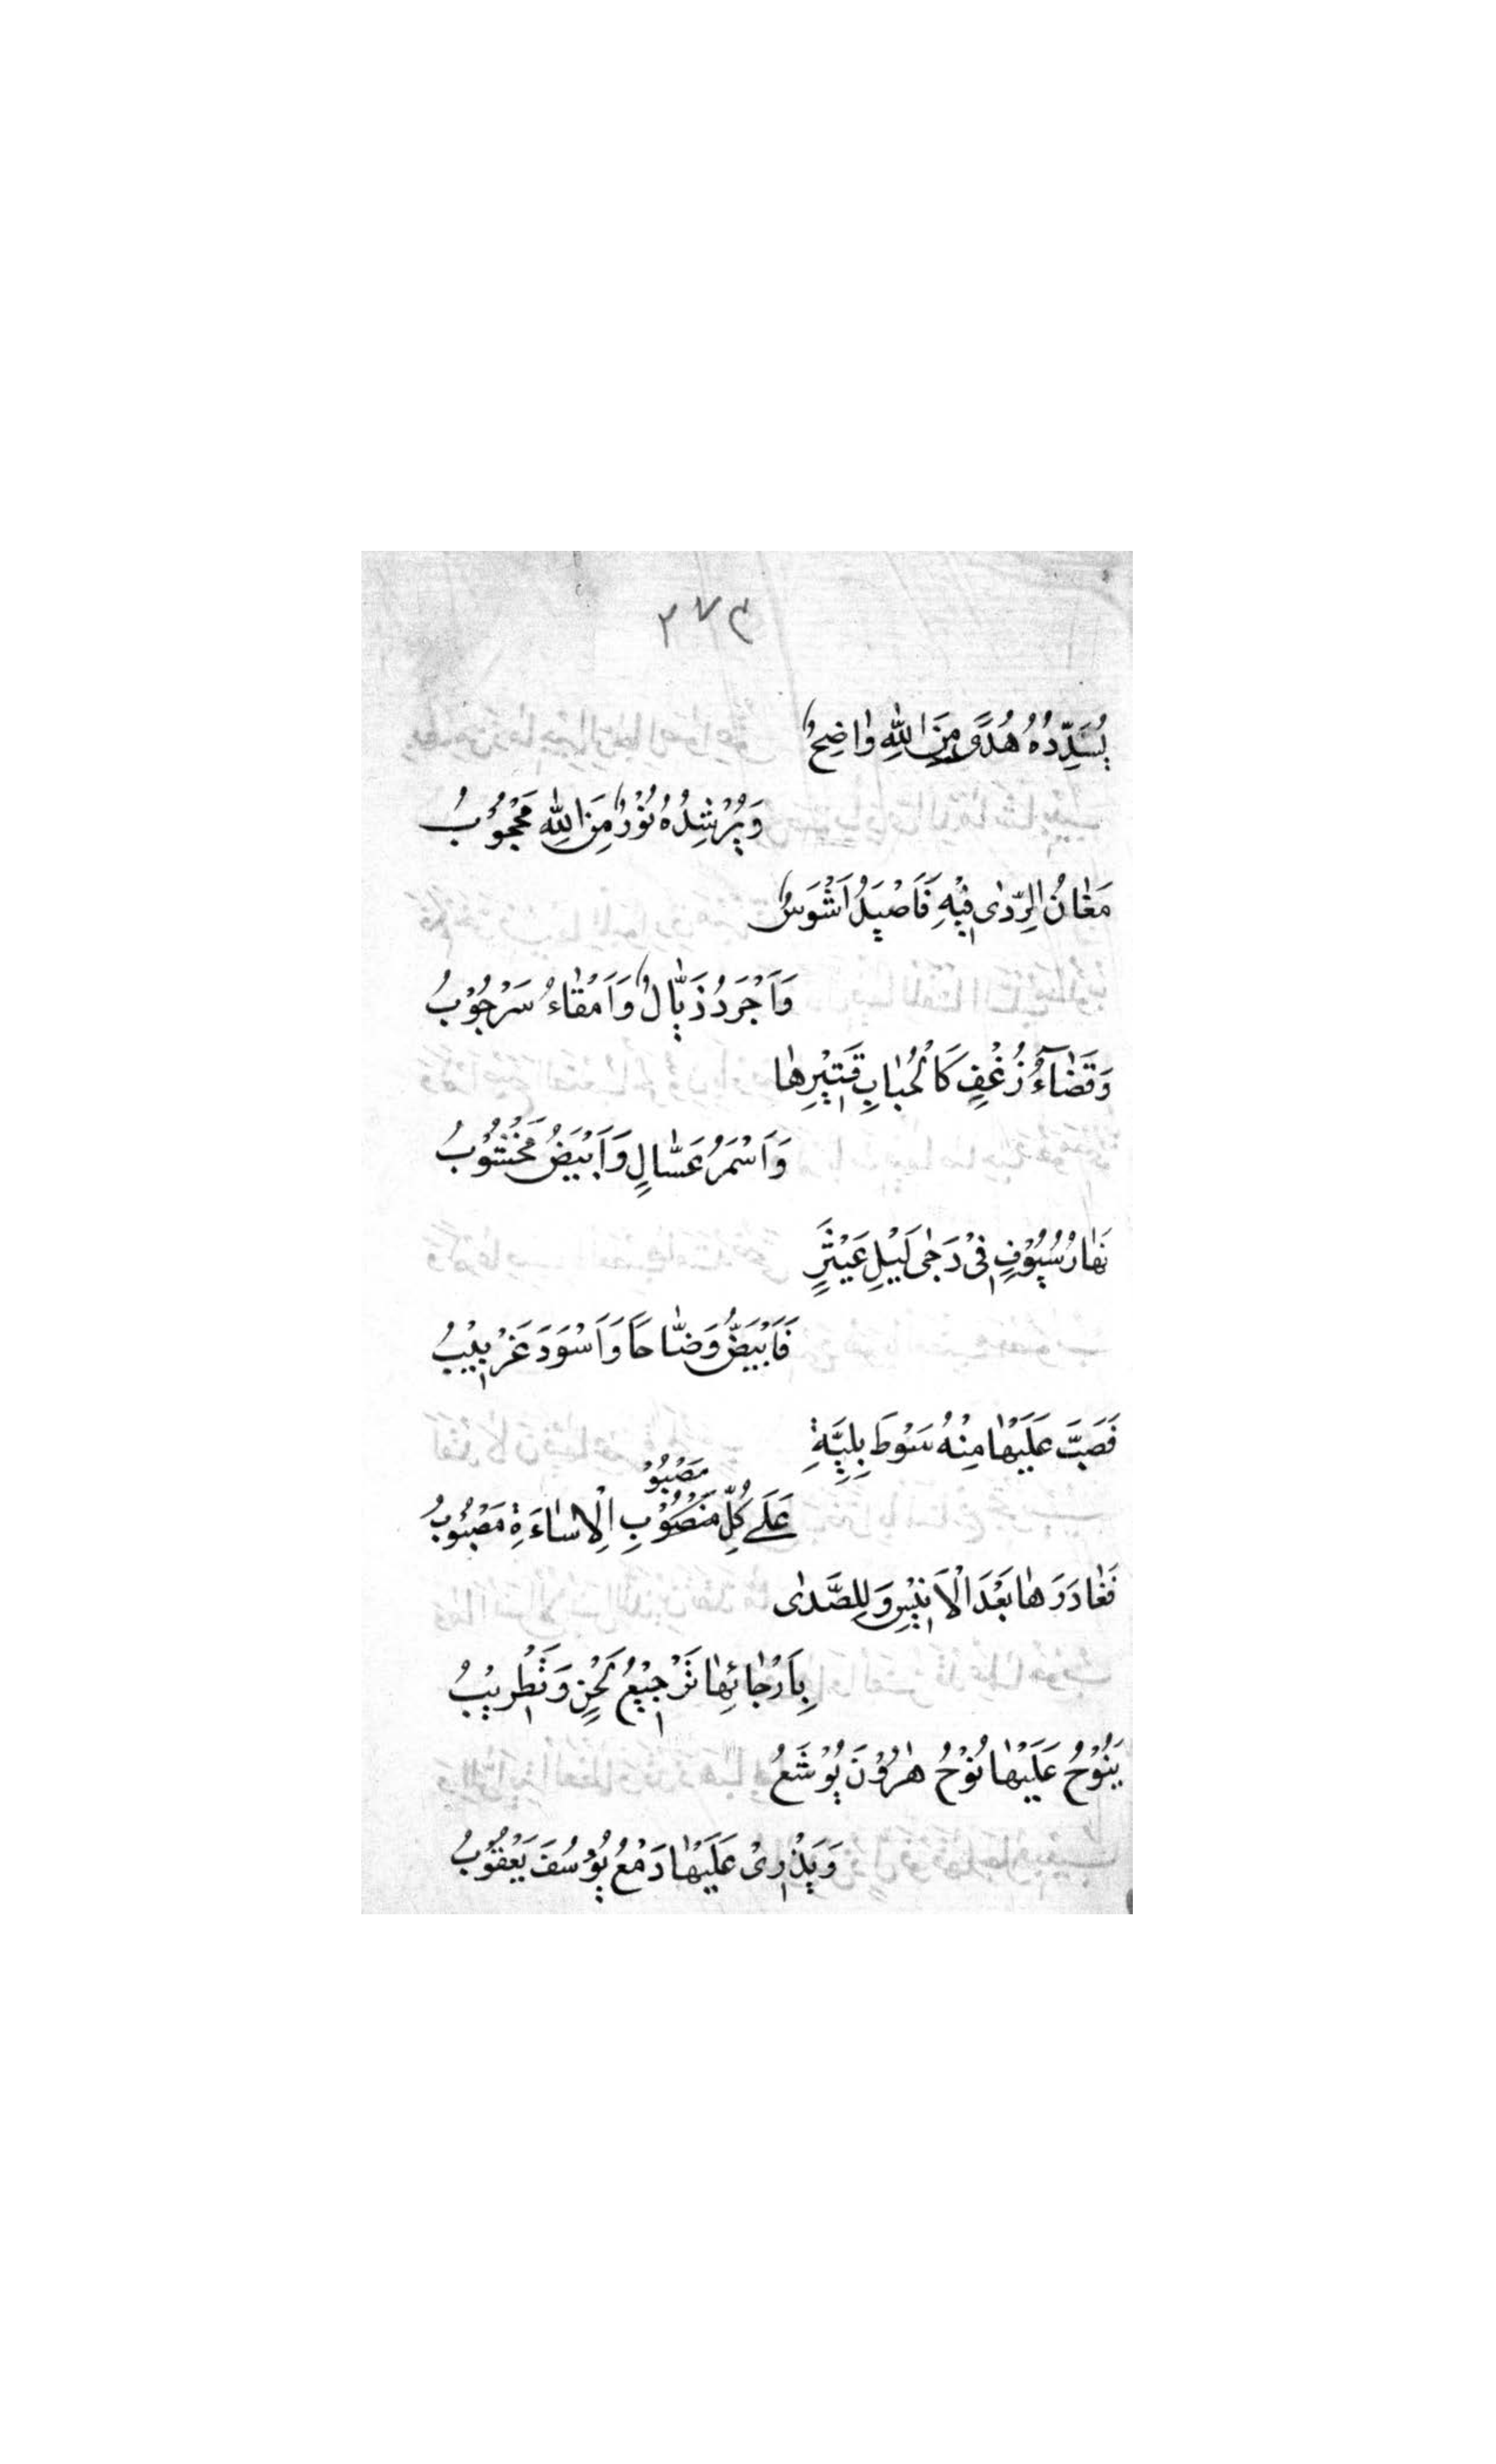 ٢٧٢
يُسَدِّدُهُ هُدًى مِنَ اللّٰهِ وٰاضِحٌ
وَيُرْشِدُهُ نُوْرٌ مِنَ اللّٰهِ مَحْجُوْبُ
مَغٰانُ الرِّدٰى فِيْهِ فَاَصْيَدُ اَشْوَسٌ
وَاَجْرَدُ ذَيّٰالٌ وَاَمْقٰاءُ سَرْجُوْبُ
وَقَضٰآءُ زُغْفٍ كَالْحُبٰابِ قَتِيْرِهٰا
وَاَسْمَرُ عَسّٰالٍ وَاَبْيَضُ مَخْشُوْبُ
نَهٰارُ سُيُوْفٍ فِىْ دَجٰى لَيْلِ عَيْثَرٍ
فَاَبْيَضُّ وَضّٰاحًا وَاَسْوَدَ غَرْبِيْبُ
فَصَبَّ عَلَيْهٰا مِنْهُ سَوْطَ بِلِيَّةِ
مَصْبُوْ
عَلَے كُلِّ مَنْصُوْبِ الْاِسٰاءَةِ مَصْبُوْبُ
فَغٰادَرَهٰا بَعْدَ الْاَنِيْسِ وَلِلصَّدٰى
بِاَرْجٰائِهٰا تَرْجِيْعُ لَحْنٍ وَتَطْرِيْبُ
يَنُوْحُ عَلَيْهٰا نُوْحُ هٰرُوْنَ يُوْشَعُ
وَيَذْرِىْ عَلَيْهٰا دَمْعُ يُوْسُفَ يَعْقُوْبُ